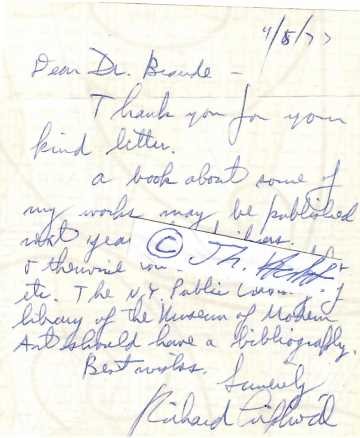 4/5/77
Dear Dr. Beaude –
Thank you for your
kind letter.
a book about some of
my works may be published
next year
©
etc. The N.Y. Public
library of the Museum of Modern
Art should have a bibliography.
Best wishes.
Sincerely
Richard